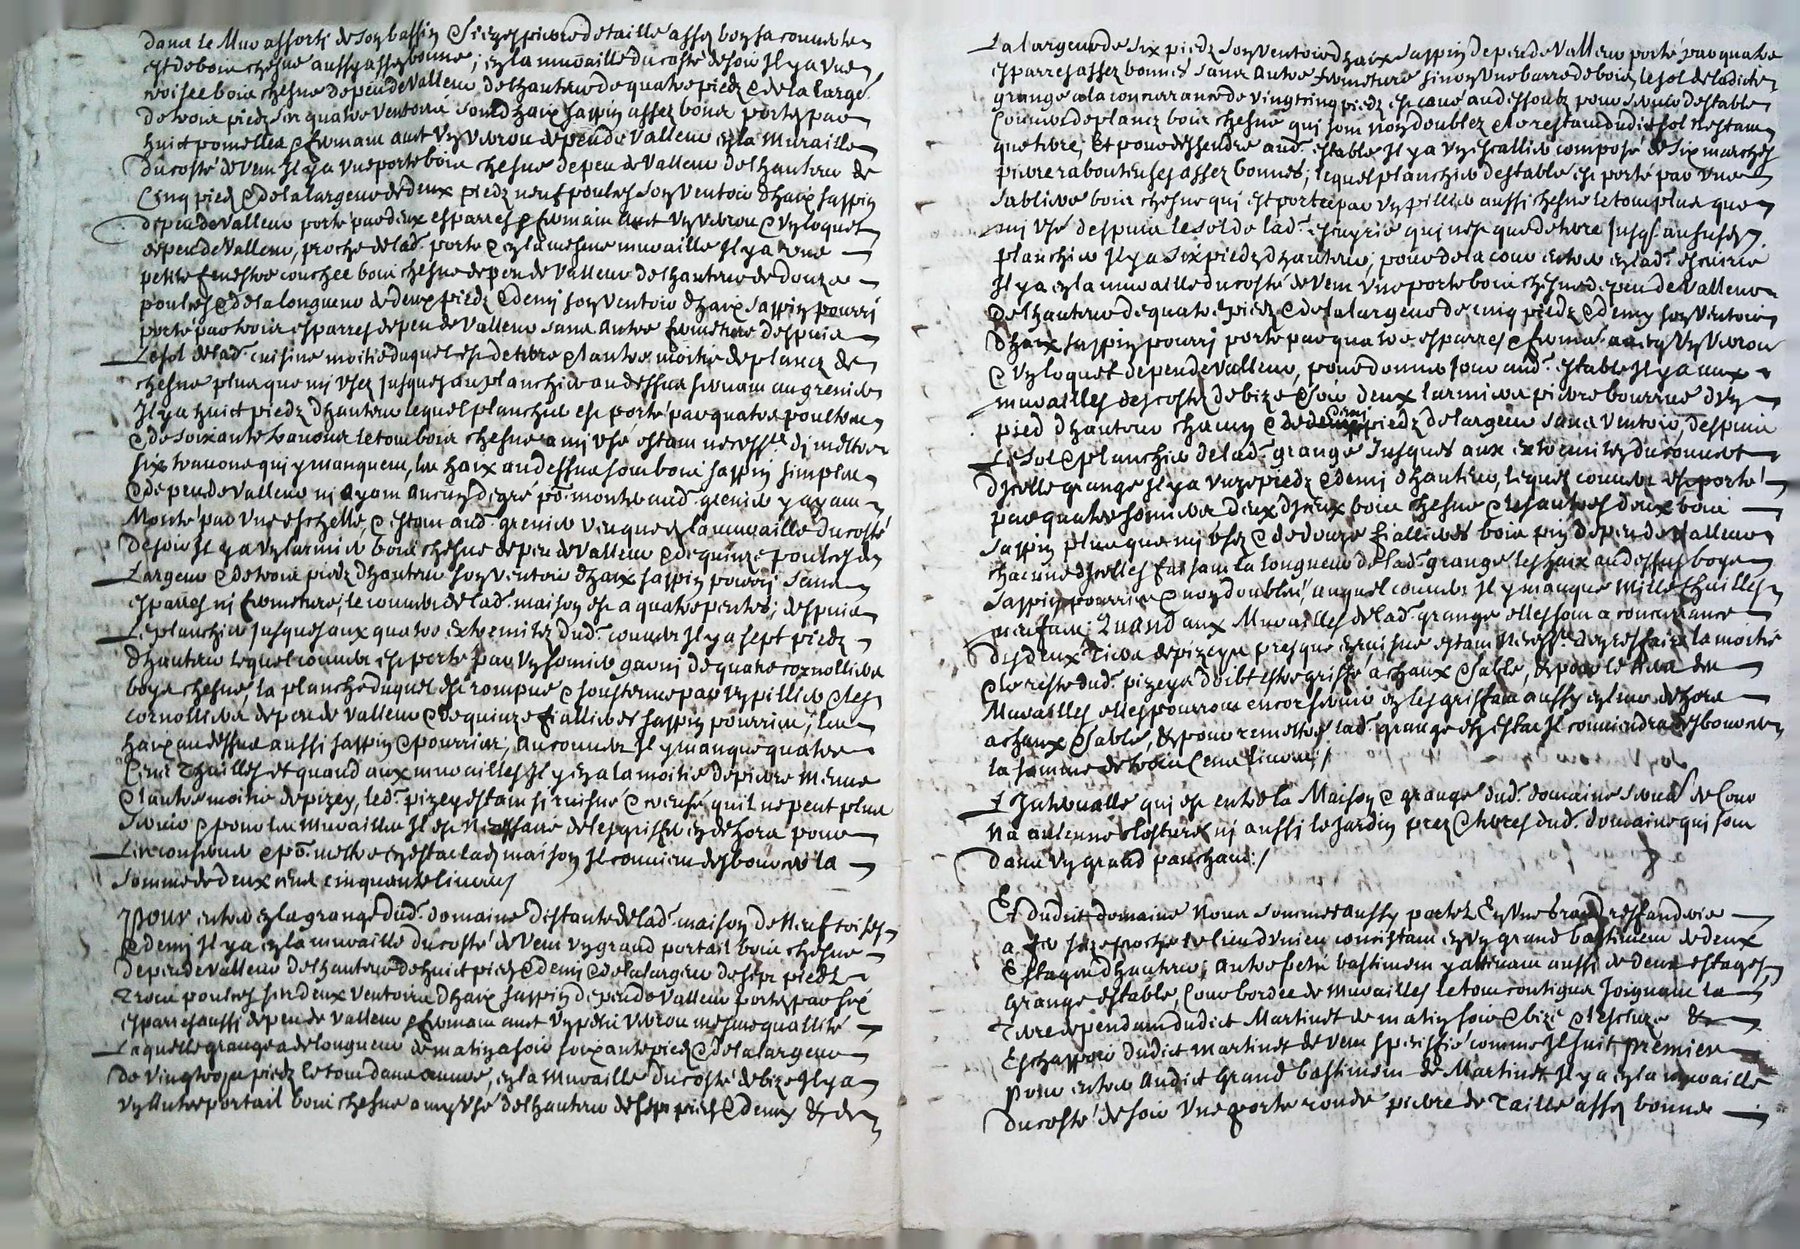 dans le Mur assorti de son bassin & siege pierre de taille assez bon sa couverte
est de bois chesne aussy assez bonne; en la muraille du costé de soir Il y a une
croisee bois chesne de peu de valleur, de lhauteur de quatre piedz & de la large
de trois piedz son quatre ventoirs sont dhaix sappin assez bons portés par
huict pomelles & fermant avec un verrou de peu de valleur en la muraille
du costé de vent Il y a une porte bois chesne de peu de valleur de lhauteur de
Cinq piedz & de la largeur de deux piedz neuf poulces son ventoir dhaix sappin
de peu de valleur porté par deux esparres & fermant avec un verrou & un loquet
de peu de valleur, proche de lad. porte & en la mesme muraille Il y a une
petite fenestre couchee bois chesne de peu de valleur de lhauteur de douze
poulces & de la longueur de deux piedz & demi son ventoir dhaix sappin pourri
porté par trois esparres de peu de valleur sans autre fermeture despuis
Le sol de lad. cuisine moitié duquel est de terre & lautre moitié de plancz de
chesne plus que mi usez jusques au planchier au dessus servant au grenier
Il y a huict piedz dhauteur lequel planchier est porté par quatre poultres
& de soixante travons le tout bois chesne a mi usé estant necess.re dj mettre
six travons qui y manquent, les haix au dessus sont bois sappin simples
& de peu de valleur ni ayant aucun degré po.r monter aud. grenier y ayant
Monté par une eschelle, & estant aud. grenier vers & en la muraille du costé
de soir Il y a un larmier bois chesne de peu de valleur & de quinze poulces en
Largeur & de trois piedz dhauteur son ventoir dhaix sappin pourri sans
esparres ni fermeture, le couvert de lad. maison est a quatre pentes; despuis
Le planchier jusques aux quatre extremitez dud. couvert Il y a sept piedz
dhauteur lequel couvert est porté par un somier garni de quatre cornolliers
boys chesne, la planche duquel est rompue & soustenue par un pillier & les
cornolliers de peu de valleur & de quinze fiallieres sappin pourries, les
haix au dessus aussi sappin & pourries, au couvert Il y manque quatre
Cens Thuilles et quand aux murailles Il y en a la moitié de pierre menue
& lautre moitié de pizey, led. pizey estant si ruisné & creusé quil ne peut plus
servir & pour les murailles Il est necessaire de les griffer en dehors pour
Les conserver & po.r mettre en estat lad. maison Il convient desbourcer la
somme de deux cens cinquante livres /
Pour entrer en la grange dud. domaine distante de lad. maison de Neuf toises
& demy Il y a en la muraille du costé de vent un grand portail bois chesne
de peu de valleur de lhauteur de huict piedz & demi & de la largeur de sept piedz
Trois poulces ses deux ventoirs dhaix sappin de peu de valleur portés par six
esparres aussi de peu de valleur & fermant avec un petit verrou mesme quallité
Laquelle grange a de longueur de matin a soir soixante piedz & de la largeur
de vingtrois piedz le tout dans œuvre, en la muraille du costé de bize Il y a
un Autre portail bois chesne a my usé de lhauteur de sept piedz & demy & de
La largeur de six piedz son ventoir dhaix sappin de peu de valleur porté par quatre
esparres assez bonnes sans autre fermeture sinon une barre de bois, le sol de ladicte
grange a la concurrance de vingtcinq piedz est cavé au dessoubz pour servir destable
Couvert de plancz bois chesne qui sont non doublez & le restant dudict sol nestant
que terre; Et pour dessendre aud. estable Il y a un escallier composé de six marches
pierre raboteuses assez bonnes; lequel planchier destable est porté par une
sabliere bois chesne qui est portee par un pillier aussi chesne le tout plus que
mi usé despuis le sol de lad. escuyrie qui nest que de terre jusq. au susd.
planchier Il y a six piedz dhauteur, pour de la cour entrer en lad. escuirie
Il y a en la muraille du costé de vent une porte bois chesne de peu de valleur
de lhauteur de quatre piedz & de la largeur de cinq piedz & demy son ventoir
dhaix sappin pourri porté par quatre esparres & fermant avec un verrou
& un loquet de peu de valleur, pour donner jour aud. estable Il y a aux
murailles des costez de bize & soir deux larmiers pierre bourrue dun
pied dhauteur chacun & de demi piedz de largeur sans ventoir, despuis
Le sol & planchier de lad. grange jusques aux extremitez du couvert
dicelle grange Il y a unze piedz & demi dhauteur, lequel couvert est porté
par quatre somiers deux dyceux bois chesne & les autres deux bois
sappin plus que mi usez & de douze fiallieres bois pin de peu de valleur
chacune dicelles faisant la longueur de lad. grange les haix au dessus boys
sappin pourries & non doublés auquel couvert Il y manque Mille thuilles
Quand aux Murailles de lad. grange elles sont a concurrance
des deux Tiers de pizeys presque en ruisne estant necess.re den reffaire la moitié
& le reste dud. pizeys doibt estre griffé a chaux & sable, & pour le tiers des
Murailles elles pourront encor servir en les griffant aussy en lieu dehors
a chaux & sable, & pour remettre lad. grange en estat Il conviendra desbourcer
la somme de trois Cens livres /
Lintervalle qui est entre la Maison & grange dud. domaine servant de Cour
Na aulcune closture ni aussi le jardin prez & terres dud. domaine qui sont
dans un grand panchant /
Et dudict domaine Nous sommes aussy portez en une
proche le lieu dunieu consistant en un grand bastiment de deux
Estages dhauteur; autre petit bastiment y attenant aussi de deux estages
grange estable, Cour bordee de murailles le tout contigus joignant la
Terre dependant dudict Martinet de matin soir & bize & lescluze &
Eschappoir dudict martinet de vent speciffié comme sensuit premier
Pour entrer Audict Grand bastiment de Martinet Il y a en la muraille
du costé de soir une porte ronde pierre de Taille assez bonne